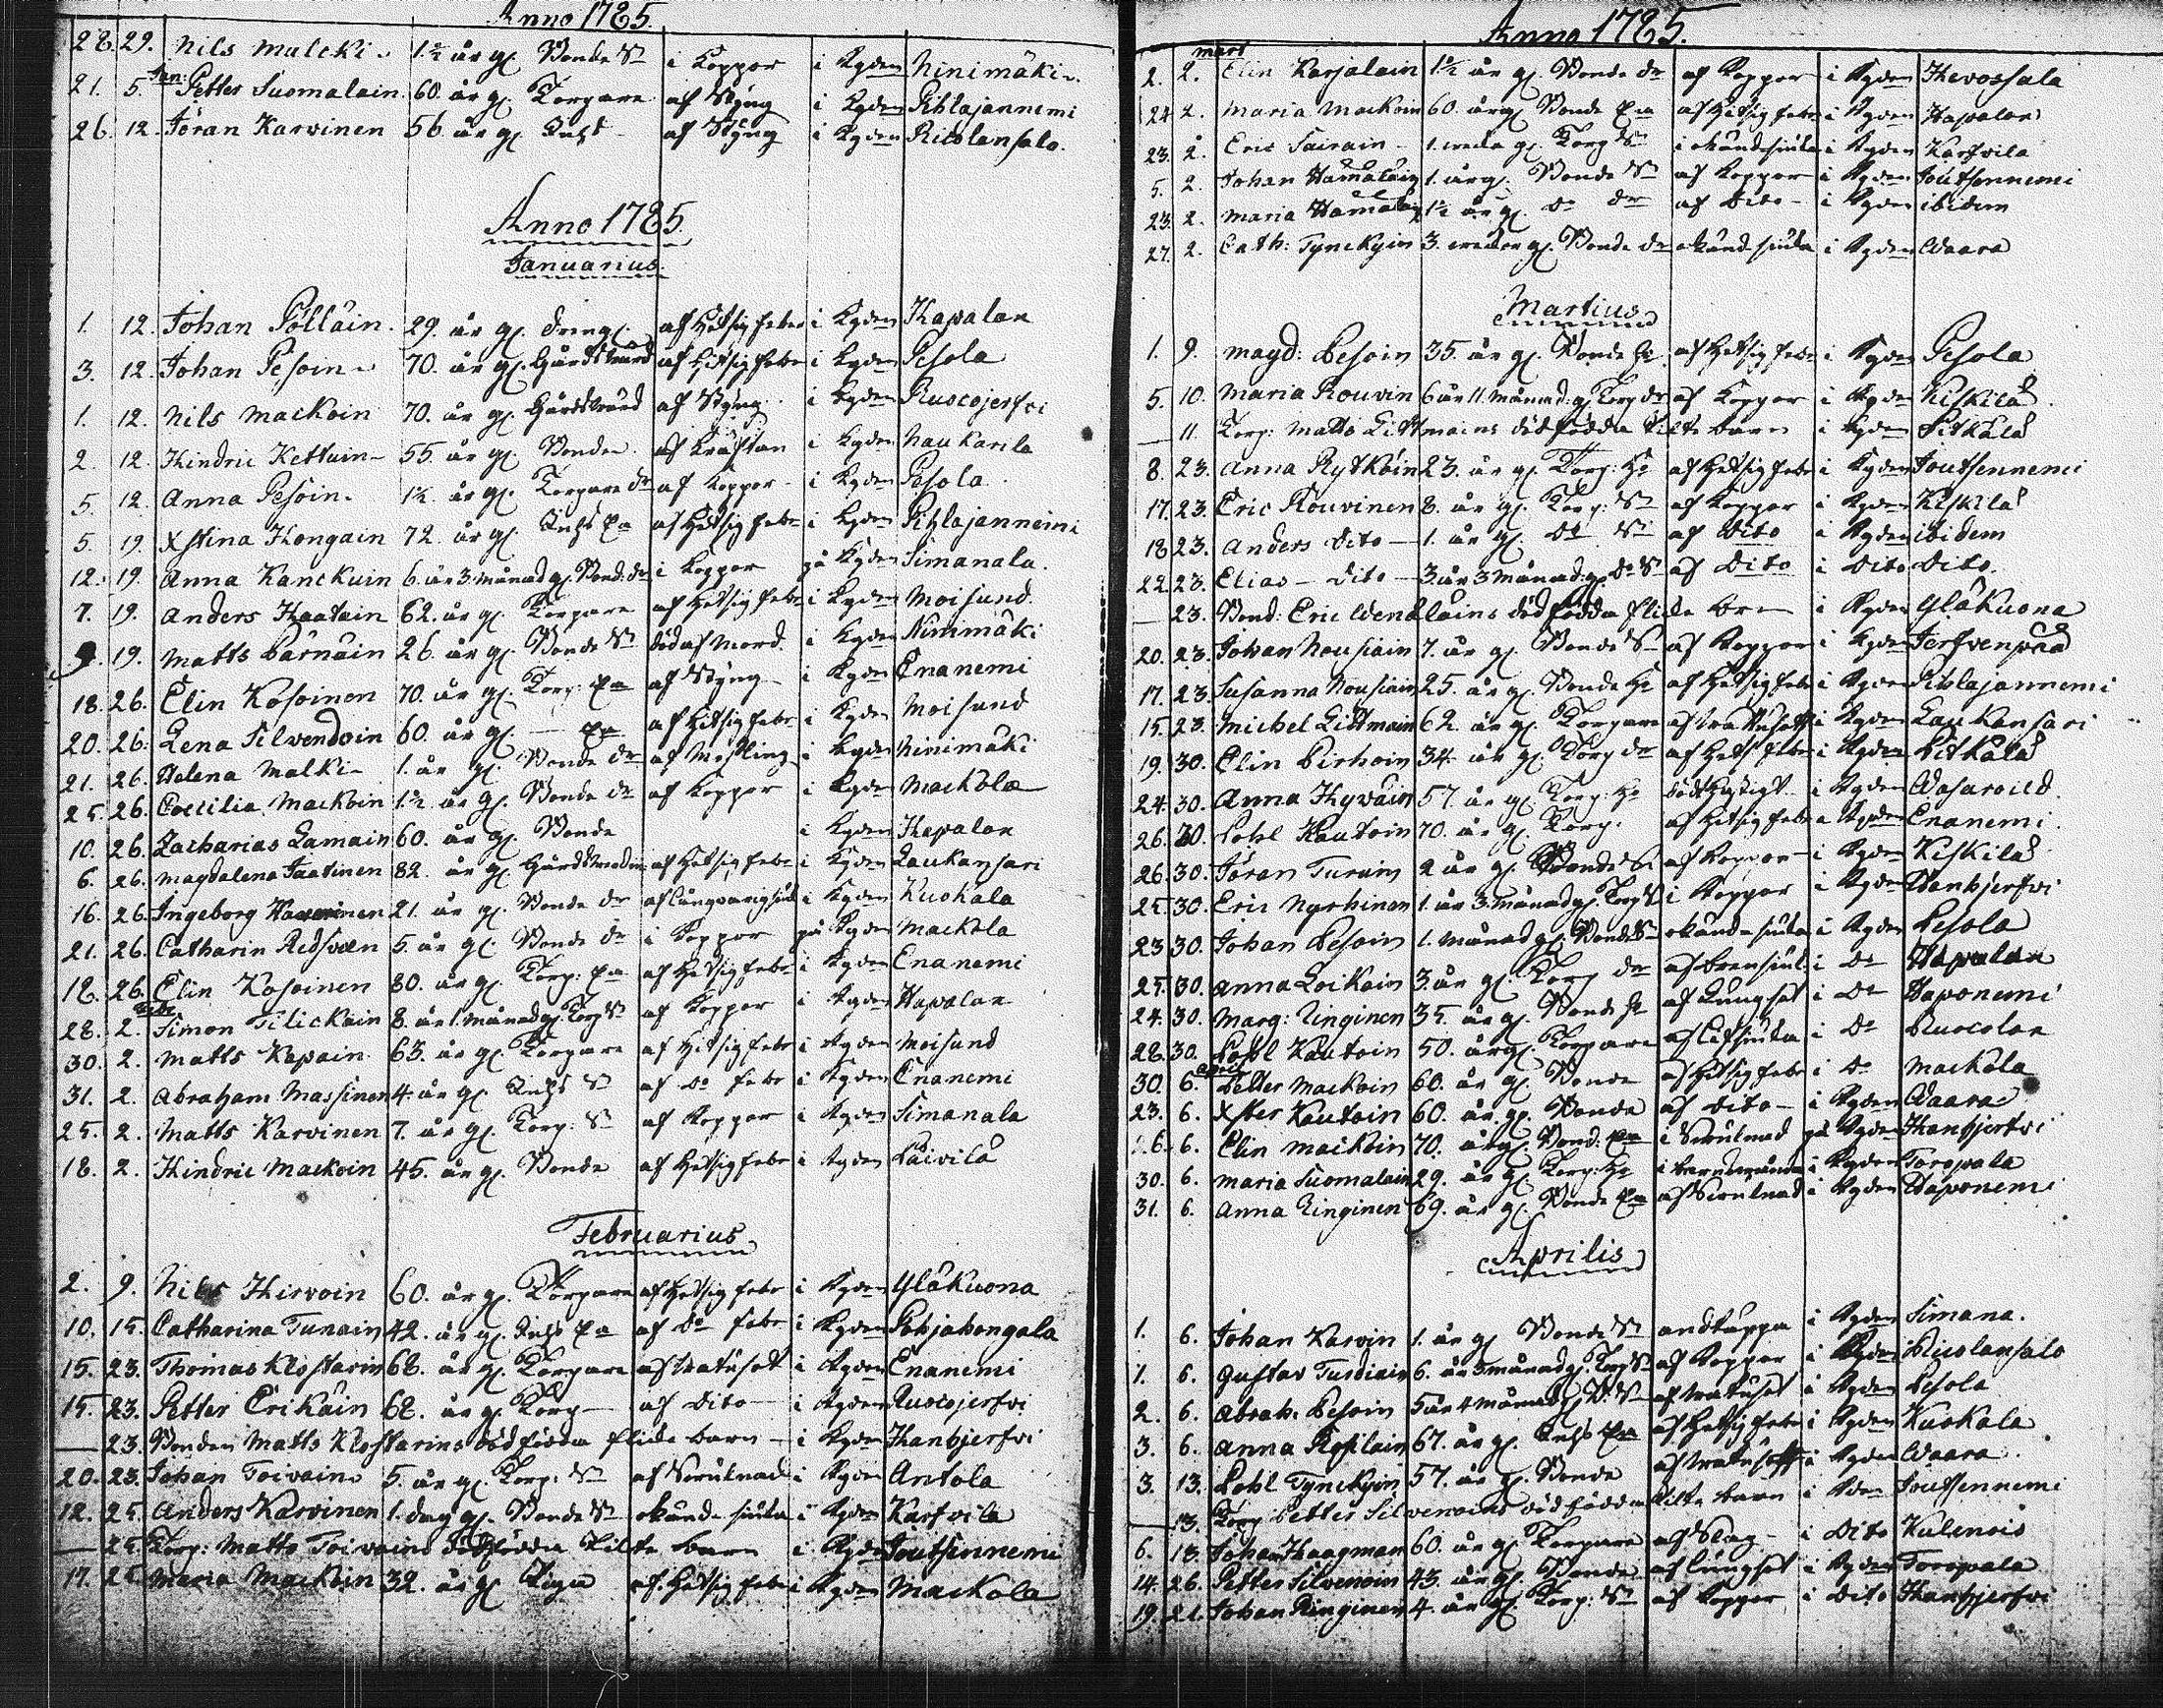 Anno 1785.
28. 29. Nils Mulcki 1 1/2 år gl. Bonde Sn i koppor i Kyden Ninimäki
21. Jan: 5. Petter Suomalain. 60. år gl. Torpare af Styng i Kyden Pihlajannemi
26. 12. Jöran Karvinen 56 år gl. Inhs af Styng i Kyden Ricolansalo.
Anno 1785.
Januarius.
1. 12. Johan Pölläin. 29. år gl. dreng. af Hetsig feber i Kyden Hapalax
3. 12. Johan Pesoin 70. år gl. Gårdsvärd af Hetsig feber i Kyden Pesola
1. 12. Nils Mackoin 70. år gl. Gårdsvärd af Styng i Kyden Ruocojerfvi
2. 12. Hindric Kettuin 55. år gl. Bonde af kräftan i Kyden Naukanla
5. 12. Anna Pesoin 1 1/2 år gl. Torpare dr af koppor i Kyden Pesola
5. 19. Xstina Hongain 72. år gl. Inhs Ea af Hetsig feber i Kyden Pihlajannemi
12. 19. Anna Kanckuin 6. år 3. månad gl. Bond: dr i koppor på Kyden Simanala.
7. 19. Anders Haatain 62. år gl. Torpare af Hetsig feber i Kyden Moisund
9. 19. Matts Bärnäin 26. år gl. Bonde Sn död af mord i Kyden Ninimäki
18. 26. Elin Kosoinen 70. år gl. Torp: Ea af Styng i Kyden Enanemi
20. 26. Lena Silvendoin 60. år gl. Ea af Hetsig febr i Kyden Moisund
21. 26. Helena Malki 1. år gl. Bonde dr af Mäsling i Kyden Ninimäki
25. 26. Coecilia Mackoin 1 1/2 år gl. Bonde dr af koppor i Kyden Mackola
10. 26. Zacharias Lamain 60. år gl. Bonde i Kyden Hapalax
6. 26. Magdalena Jaatinen 82. år gl. Gårdsmodr af Hetsig febr i Kyden Laukansari
16. 26. Ingeborg Kaverinen 21. år gl. Bonde dr af långvarig siuk i Kyden Kuokala
21. 26. Catharin Redsvæn 5. år gl. Bonde dr i koppor på Kyden Mackola
18. 26. Elin Kosoinen 80. år gl. Torp: Ea af Hetsig febr i Kyden Enanemi
28. Febr: 2. Simon Tilickain 8. år 1. månad gl. Torp Sn af koppor i Kyden Hapalax
30. 2. Matts Kapain 63. år gl. Torpare af Hetsig febr i Kyden Moisund
31. 2. Abraham Massinen 4. år gl. Inhs Sn af Do febr i Kyden Enanemi
25. 2. Matts Karvinen 7. år gl. Torp: Sn af koppor i Kyden Simanala
18. 2. Hindric Mackoin 45. år gl. Bonde af Hetsig febr i Kyden Päivilä
Februarius
2. 9. Nils Hirvoin 60. år gl. Torpare af Hetsig febr i Kyden Yläkuona
10. 15. Catharina Tunain 42. år gl. Inhs Ea af Do febr i Kyden Pohjahongala
15. 23. Thomas Klostarin 68. år gl. Torpare af vatusot i Kyden Enanemi
15. 23. Petter Erikäin 68. år gl. Torp af Dito i Kyden Ruocojerfvi
— 23. Bonden Matts Klostarins dödfödda flicke barn i Kyden Hanhjerfvi
20. 23. Johan Toivain 5. år gl. Torp: Sn af Svulnad i Kyden Antola
12. 25. Anders Karvinen 1. dag gl. Bonde Sn okände siuka i Kyden Karfvila
— 25. Torp: Matts Toivains dödfödda Pilte barn i Kyden Joutsennemi
17. 25. Maria Mackoin 32. år gl. Piga af Hetsig febr i Kyden Mackola
Anno 1785.
2. mart 2. Elin Karjalain 1 1/2 år gl. Bonde dr af koppor i Kyden Hevossala
24. 2. Maria Mackoin 60. år gl. Bonde Ea af Hetsig febr i Kyden Hapalax
23. 2. Eric Sairain 1. wecka gl. Torp Sn i okände siuka i Kyden Karfvila
5. 2. Johan Hämäläin 1. år gl. Bonde Sn af koppor i Kyden Joutsennemi
23. 2. Maria Hämäläin 1 1/2 år gl. Do dr af Dito i Kyden ibidem
27. 2. Cath: Tynckyin 3. weckor gl. Bonde dr okände siuka i Kyden Waara
Martius
1. 9. Magd: Pesoin 35. år gl. Bonde H: af Hetsig febr i Kyden Pesola
5. 10. Maria Rouvin 6 år 11. månad: gl. Torp dr af koppor i Kyden Kiskilä
— 11. Torp: Matts Littmains dödfödda Pilte barn i Kyden Pitkälä
8. 23. Anna Rytköin 23. år gl. Torp: H: af Hetsig febr i Kyden Joutsennemi
17. 23. Eric Rouvinen 8. år gl. Torp: Sn af koppor i Kyden Kiskilä
18 23. Anders Dito 1. år gl. Do Sn af Dito i Kyden ibidem
22 23. Elias Dito 3. år 3 månad: gl. Do Sn af Dito i Dito Dito.
— 23. Bond: Eric Wenäläins dödfödda flicke barn i Kyden Yläkuona
20. 23. Johan Nousiain 7. år gl. Bonde Sn af koppor i Kyden Jerfvenpää
17. 23. Susanna Nousiain 25. år gl. Bonde H: af Hetsig febr i Kyden Pihlajannemi
15. 23. Michel Littmain 62. år gl. Torpare af vattusot i Kyden Laukansari
19. 30. Elin Pirhoin 34. år gl. Torp dr af Hets: febr i Kyden Pitkälä
24. 30. Anna Hyväin 57. år gl. Torp: H: död hastigt i Kyden Wasaroild
26. 30. Pohl Kautoin 70. år gl. Torp: af Hetsig febr i Kyden Enanemi
26. 30. Jöran Turuin 2 år gl. Bonde Sn af koppor i Kyden Kiskilä
25. 30. Eric Nyrhinen 1. år 3. månad gl. Torp S i koppor i Kyden Hanhjerfvi
23 30. Johan Pesoin 1. månad gl. Bonde Sn okände siuka i Kyden Pesola
25. 30. Anna Loikain 3. år gl. Torp dr af bensiuk i Do Hapalax
24. 30. Marg: Ringinen 35. år gl. Bonde H: af Lungsot i Do Haponemi
28. 30. Pohl Kautoin 50. år gl. Torpare af lifsiuka i Do Ruocolax
30. april 6. Petter Mackoin 60. år gl. Bonde af Hetsig febr i Do Mackola
23. 6. Xster Kautoin 60. år gl. Bonde af Dito i Kyden Waara
26. 6. Elin Mackoin 70. år gl. Bond: Ea i Svulnad på Kyden Hanhjerfvi
30. 6. Maria Suomalain 29. år gl. Torp: H: i barnsmånd i Kyden Toropala
31. 6. Anna Ringinen 69. år gl. Bonde Ea af Svulnad i Kyden Haponemi
Aprilis
1. 6. Johan Karvin 1. år gl Bonde Sn andtäppa i Kyden Simana.
1. 6. Gustav Tusdiain 6. år 3 månad gl. Torp Sn af koppor i Kyden Ricolansalo
2. 6. Abrah: Pesoin 5 år 4 månad gl. B: Sn af vatusot i Kyden Pesola
3. 6. Anna Kosilain 67. år gl. Inhs Ea af Hetsig febr i Kyden Kuokala
3. 13. Pohl Tynckyin 57. år gl. Bonde af vatusot i Kyden Waara
— 13. Torp Petter Silvenoins dödfödda Pilte barn i Kyden Joutsennemi
6. 13. Johan Haagman 60. år gl. Torpare af Slag i Dito Kulenois
14. 26. Petter Silvenoin 43. år gl. Bonde af lungsot i Kyden Toropala
19. 21. Johan Ringinen 4. år gl. Torp: Sn af koppor i Dito Hanhjerfvi